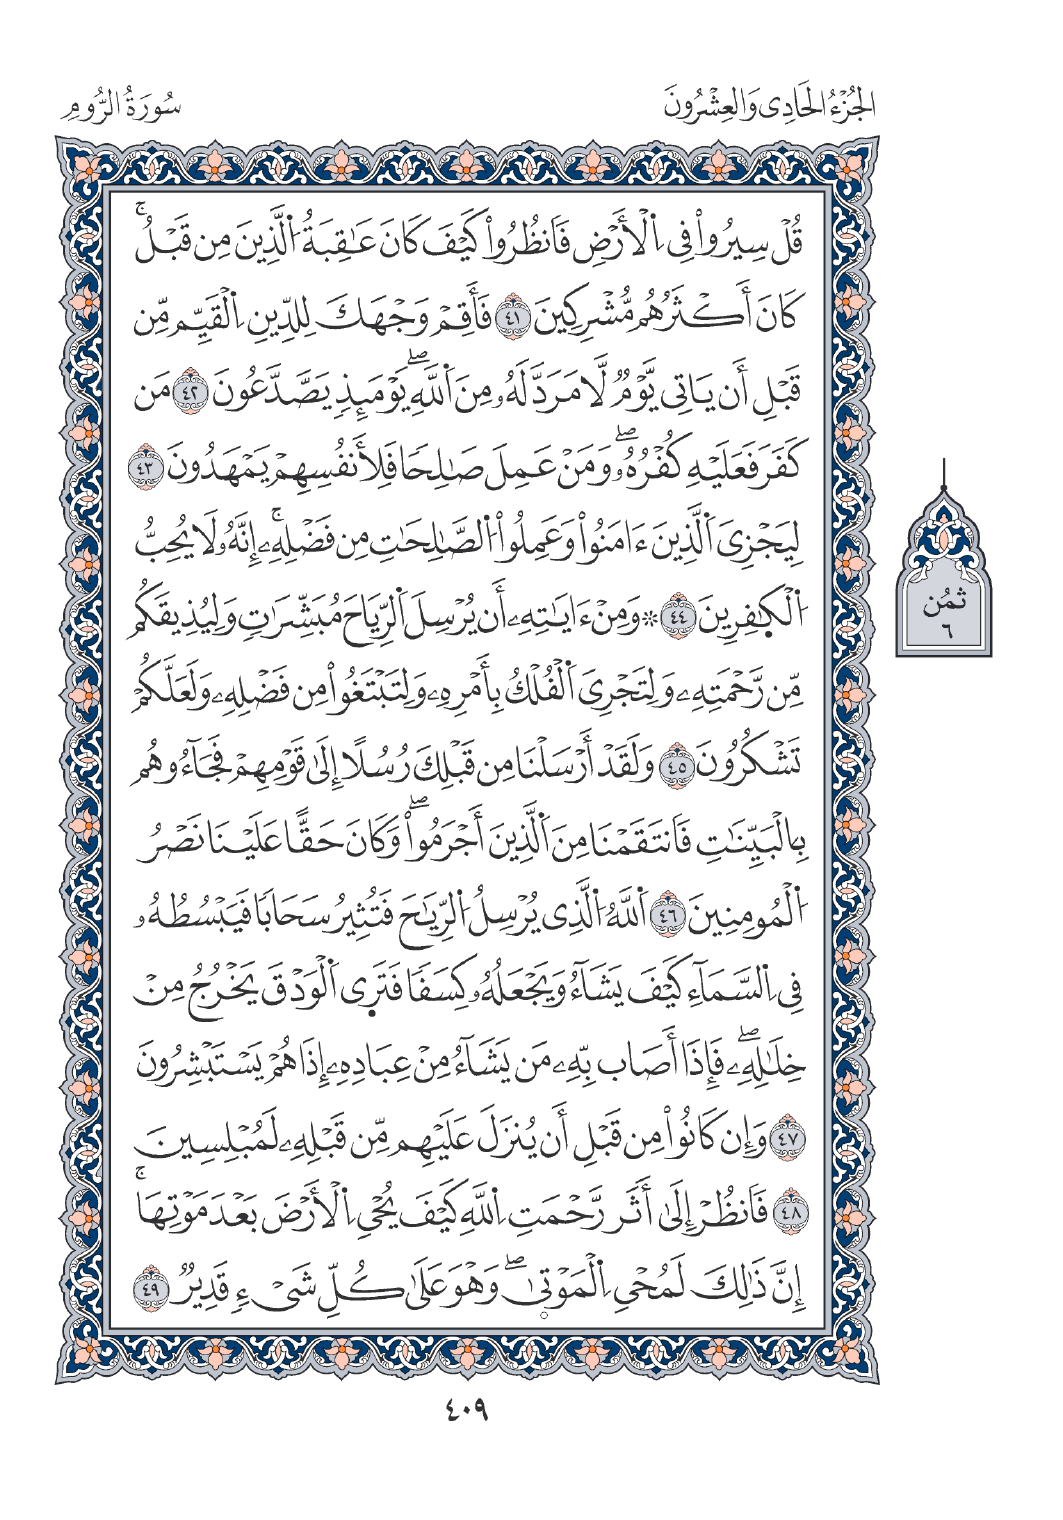 الجُزْءُ الحَادِي وَالعِشْرُونَ
سُورَةُ الرُّومِ
قُلْ سِيرُوا۟ فِى اِ۬لْأَرْضِ فَانظُرُوا۟ كَيْفَ كَانَ عَٰقِبَةُ اُ۬لَّذِينَ مِن قَبْلُۚ
كَانَ أَكْثَرُهُم مُّشْرِكِينَ ٤١ فَأَقِمْ وَجْهَكَ لِلدِّينِ اِ۬لْقَيِّمِ مِن
قَبْلِ أَن يَاتِىَ يَوْمٌ لَّا مَرَدَّ لَهُۥ مِنَ اَ۬للَّهِۖ يَوْمَئِذٍ يَصَّدَّعُونَ ٤٢ مَن
كَفَرَ فَعَلَيْهِ كُفْرُهُۥۖ وَمَنْ عَمِلَ صَٰلِحًا فَلِأَنفُسِهِمْ يَمْهَدُونَ ٤٣
لِيَجْزِىَ اَ۬لَّذِينَ ءَامَنُوا۟ وَعَمِلُوا۟ اُ۬لصَّٰلِحَٰتِ مِن فَضْلِهِۦۚ إِنَّهُۥ لَا يُحِبُّ
اُ۬لْكٰ۪فِرِينَ ٤٤ ۞ وَمِنْ ءَايَٰتِهِۦ أَن يُرْسِلَ اَ۬لرِّيَاحَ مُبَشِّرَٰتٍ وَلِيُذِيقَكُم
مِّن رَّحْمَتِهِۦ وَلِتَجْرِىَ اَ۬لْفُلْكُ بِأَمْرِهِۦ وَلِتَبْتَغُوا۟ مِن فَضْلِهِۦ وَلَعَلَّكُمْ
تَشْكُرُونَ ٤٥ وَلَقَدْ أَرْسَلْنَا مِن قَبْلِكَ رُسُلًا إِلَىٰ قَوْمِهِمْ فَجَآءُوهُم
بِالْبَيِّنَٰتِ فَانتَقَمْنَا مِنَ اَ۬لَّذِينَ أَجْرَمُوا۟ۖ وَكَانَ حَقًّا عَلَيْنَا نَصْرُ
اُ۬لْمُومِنِينَ ٤٦ اَ۬للَّهُ اُ۬لَّذِى يُرْسِلُ اُ۬لرِّيَٰحَ فَتُثِيرُ سَحَابًا فَيَبْسُطُهُۥ
فِى اِ۬لسَّمَآءِ كَيْفَ يَشَآءُ وَيَجْعَلُهُۥ كِسَفًا فَتَرَى اَ۬لْوَدْقَ يَخْرُجُ مِنْ
خِلَٰلِهِۦۖ فَإِذَا أَصَاب بِّهِۦ مَن يَشَآءُ مِنْ عِبَادِهِۦ إِذَا هُمْ يَسْتَبْشِرُونَ
٤٧ وَإِن كَانُوا۟ مِن قَبْلِ أَن يُنزَلَ عَلَيْهِم مِّن قَبْلِهِۦ لَمُبْلِسِينَ
٤٨ فَانظُرْ إِلَىٰ أَثَر رَّحْمَتِ اِ۬للَّهِ كَيْفَ يُحْىِ اِ۬لْأَرْضَ بَعْدَ مَوْتِهَاۚ
إِنَّ ذَٰلِكَ لَمُحْىِ اِ۬لْمَوْت۪ىٰۖ وَهْوَ عَلَىٰ كُلِّ شَىْءٍ قَدِيرٌ ٤٩
ثُمُن
٦
٤٠٩